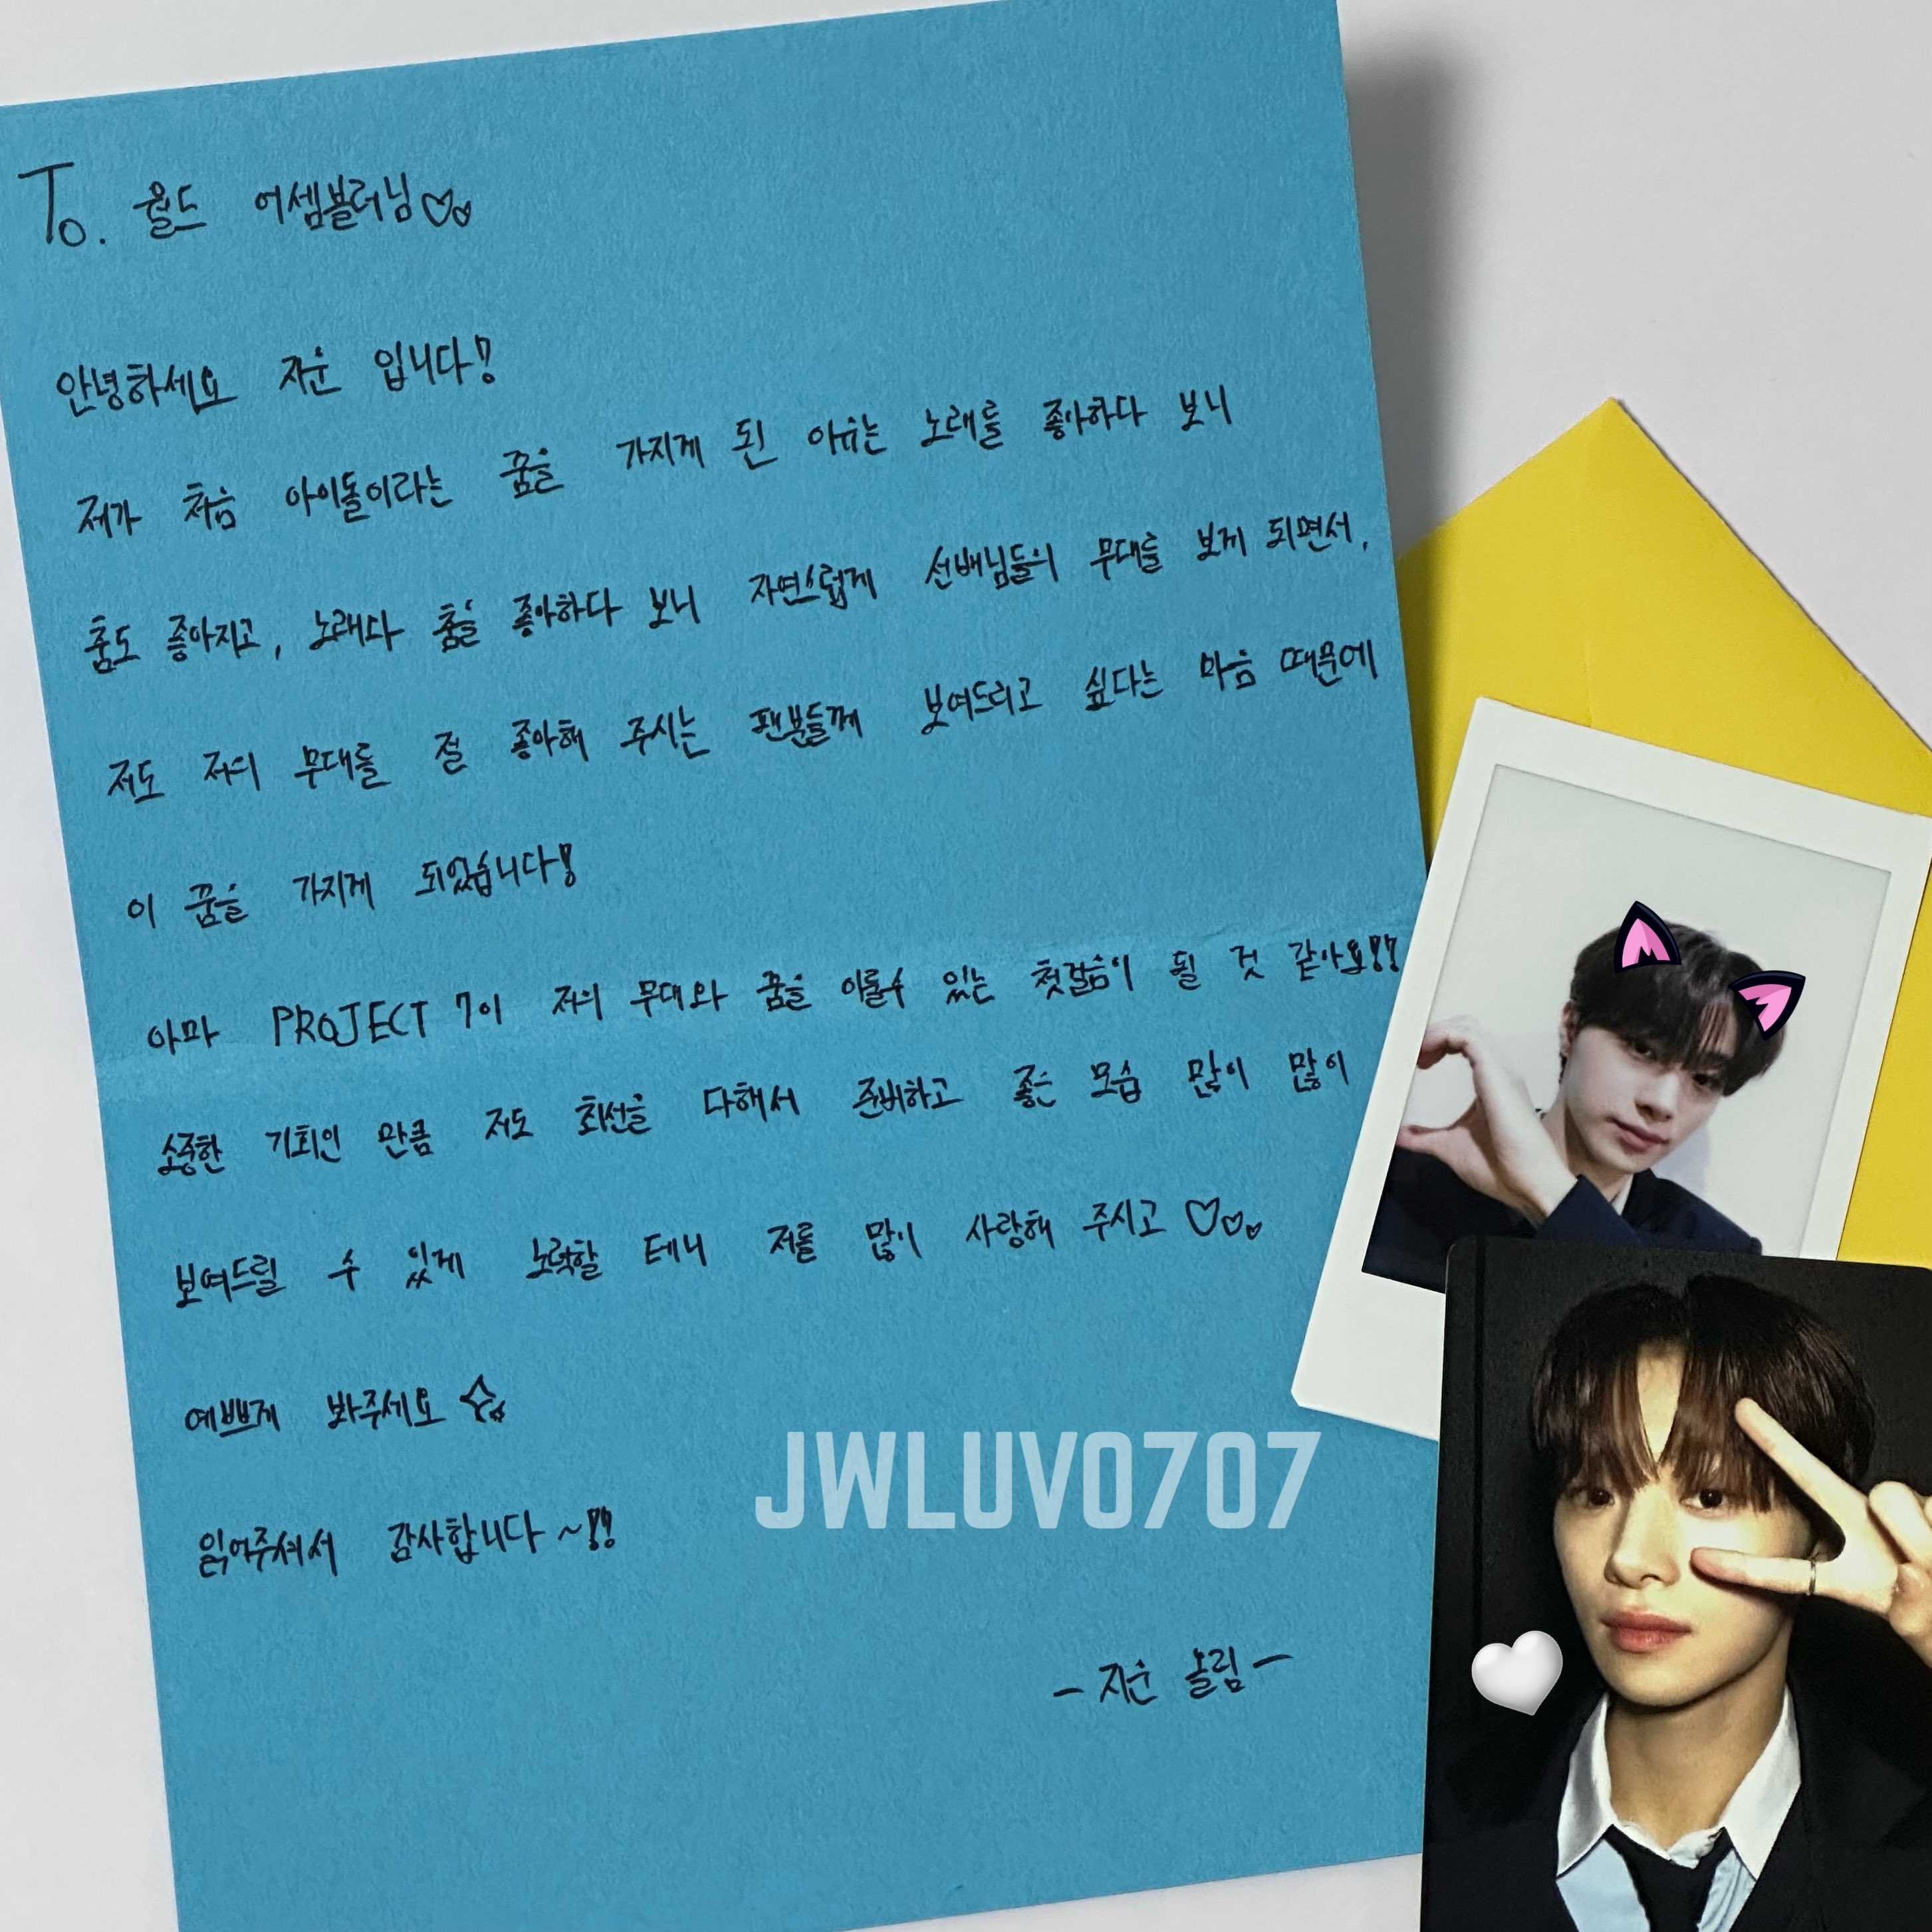 To. 월드 어셈블러님♡♡
안녕하세요 지운 입니다!
제가 처음 아이돌이라는 꿈을 가지게 된 이유는 노래를 좋아하다 보니
춤도 좋아지고, 노래와 춤을 좋아하다 보니 자연스럽게 선배님들의 무대를 보게 되면서,
저도 저의 무대를 절 좋아해 주시는 팬분들께 보여드리고 싶다는 마음 때문에
이 꿈을 가지게 되었습니다!
아마 PROJECT 7이 저의 무대와 꿈을 이룰수 있는 첫걸음이 될 것 같아요!!
소중한 기회인 만큼 저도 최선을 다해서 준비하고 좋은 모습 많이 많이
보여드릴 수 있게 노력할 테니 저를 많이 사랑해 주시고 ♡♡♡
예쁘게 봐주세요 ✧
읽어주셔서 감사합니다 ~!!
JWLUV0707
- 지운 올림 -